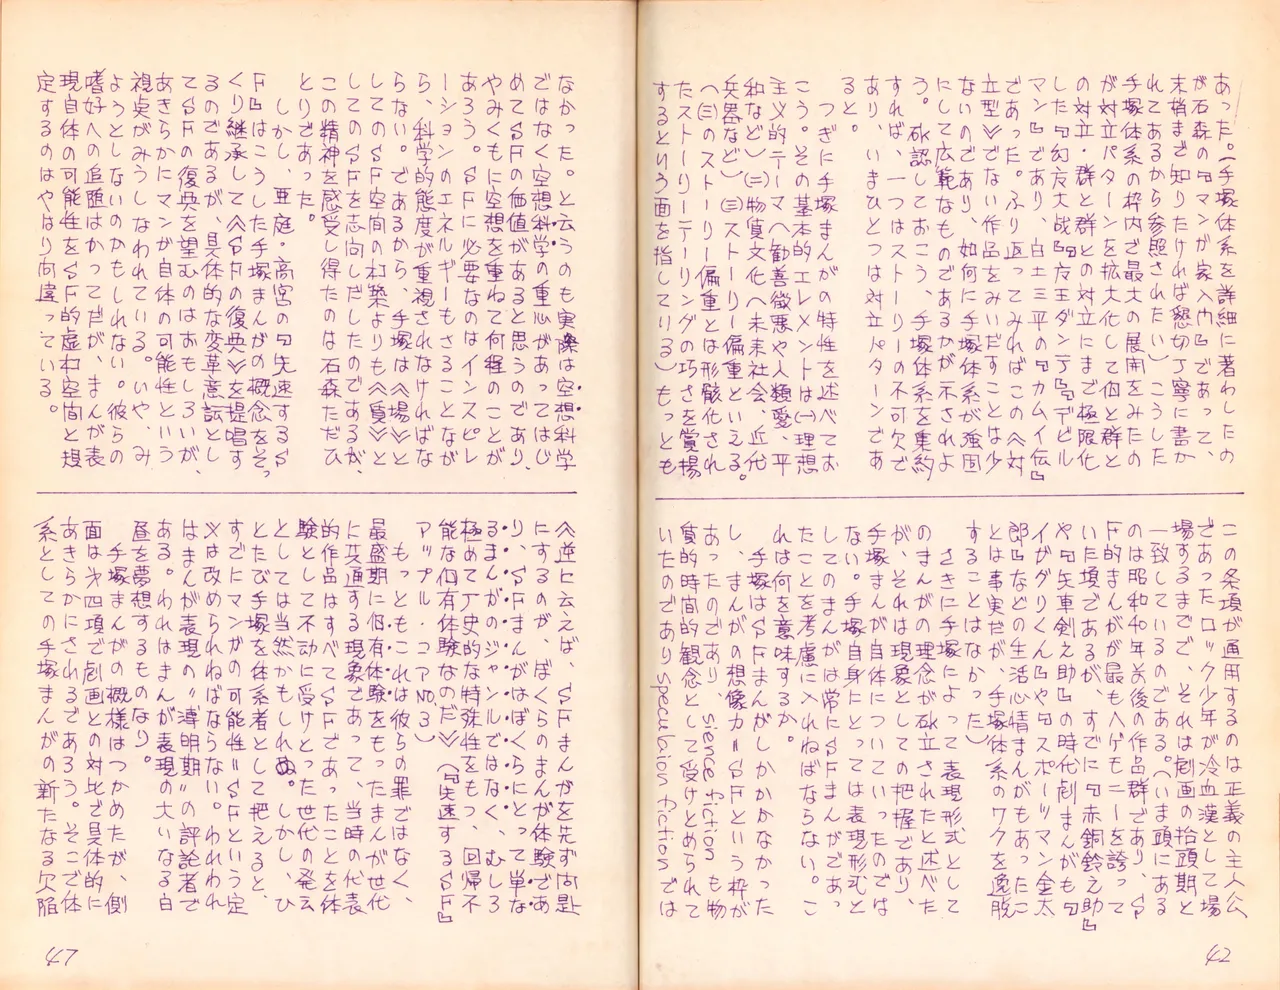 あった。(手塚体系を詳細に著わしたの
が石森の『マンガ家入門』であって、
末梢まで知りたければ懇切丁寧に書か
れてあるから参照されたい)こうした
手塚体系の枠内で最大の展開をみたの
が対立パターンを拡大化して個と群と
の対立・群と群との対立にまで極限化
した『幻魔大戦』『魔王ダンテ』『デビル
マン』であり、白土三平の『カムイ伝』
であった。ふり返ってみればこの《対
立型》でない作品をみいだすことは少
ないのであり、如何に手塚体系が強固
にして広範なものであるかが示されよ
う。確認しておこう、手塚体系を集約
すれば、一つはストーリーの不可欠で
あり、いまひとつは対立パターンであ
ると。
つぎに手塚まんがの特性を述べてお
こう。その基本的エレメントは(一)理想
主義的テーマ〈勧善懲悪や人類愛、平
和など〉(二)物質文化〈未来社会、近代
兵器など〉(三)ストーリー偏重といえる。
〈(三)のストーリー偏重とは形骸化され
たストーリーテーリングの巧さを賞揚
するという面を指している〉もっとも
この条項が通用するのは正義の主人公
であったロック少年が冷血漢として登
場するまでで、それは劇画の抬頭期と
一致しているのである。(いま頭にある
のは昭和和年前後の作品群であり、S
F的まんがが最もヘゲモニーを誇って
いた頃であるが、すでに『赤銅鈴之助』
や『矢車剣之助』の時代劇まんがも『
イガグリくん』や『スポーツマン金太
郎』などの生活心情まんがもあったこ
とは事実だが、手塚体系のワクを逸脱
することはなかった)
さきに手塚によって表現形式として
のまんがの理念が確立されたと述べた
が、それは現象としての把握であり、
手塚まんが自体についていったのでは
ない。手塚自身にとっては表現形式と
してのまんがは常にSFまんがであっ
たことを考慮に入れねばならない。こ
れは何を意味するか。
手塚はSFまんがしかかかなかった
し、まんがの想像力=SFという枠が
あったのであり Sience fictionも物
質的時間的観念として受けとめられて
いたのであり speculation fictionでは
なかった。と云うのも実際は空想科学
ではなく空想科学の重心があってはじ
めてSFの価値があると思うのであり、
やみくもに空想を重ねて何程のことが
あろう。SFに必要なのはインスピレ
ーションのエネルギーもさることなが
ら、科学的態度が重視されなければな
らない。であるから、手塚は《場》と
してのSF空間の構築よりも《質》と
してのSFを志向しだしたのであるが、
この精神を感受し得たのは石森ただひ
とりであった。
しかし、亜庭・高宮の『失速するS
F』はこうした手塚まんがの概念をそっ
くり継承して《SFの復興》を提唱す
るのであるが、具体的な変革意識とし
てSFの復興を望むのはおもしろいが、
あきらかにマンガ自体の可能性という
視点がみうしなわれている。いや、み
ようとしないのかもしれない。彼らの
嗜好への追随はかってだが、まんが表
現自体の可能性をSF的虚構空間と規
定するのはやはり向違っている。
《逆に云えば、SFまんがを先ず問題
にするのが、ぼくらのまんが体験であ
り、SFまんがはぼくらにとって単な
るまんがのジャンルではなく、むしろ
極めて丁史的な特殊性をもつ、回帰不
能な個有体験なのだ》(『失速するSF』
アップル・コアNO.3)
もっともこれは彼らの罪ではなく、
最盛期に個有体験をもったまんが世代
に共通する現象であって、当時の代表
的作品はすべてSFであったことを体
験として不動に受けとった世代の発云
としては当然かもしれぬ。しかし、ひ
とたび手塚を体系者として把えると、
すでにマンガの可能性=SFという定
义は改められねばならない。われわれ
はまんが表現の〝漙明期〟の評論者で
ある。われはまんが表現の大いなる白
昼を夢想するものなり。
手塚まんがの概様はつかめたが、側
面は才四項で劇画との対比で具体的に
あきらかにされるであろう。そこで体
系としての手塚まんがの新たなる欠陥
47
42